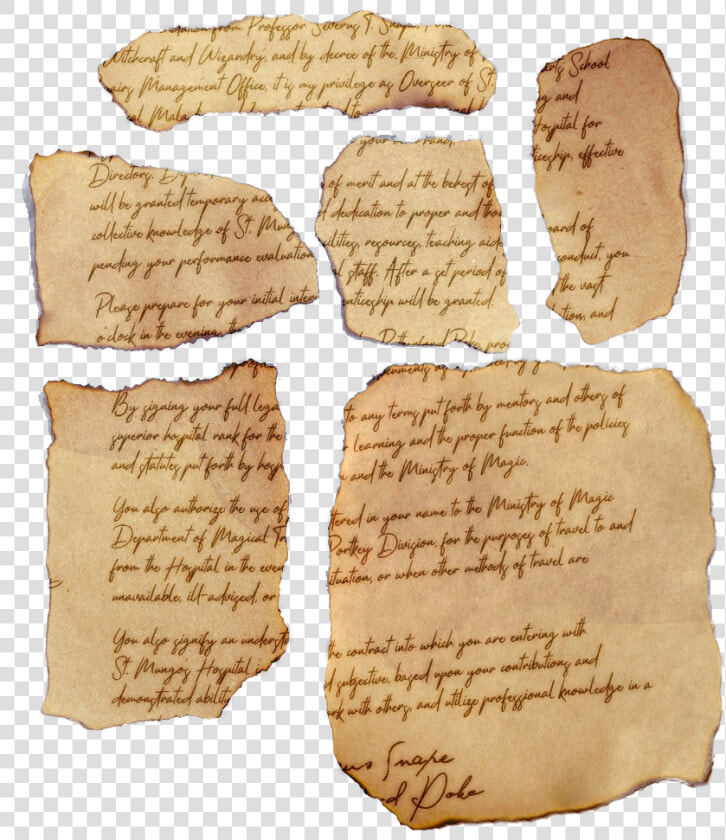 from Professor Severus T. Snape
Witchcraft and Wizardry, and by decree of the Ministry of
airs Management Office, it is my privilege as Overseer of St
al Mala
en's School
g and
Hospital for
ticeship, effective
oard of
conduct, you
the vast
tion, and
Directors. D
will be granted temporary acc
collective knowledge of St. Mung
pending your performance evaluation
Please prepare for your initial inter
o'clock in the evening, th
your
of merit and at the behest of
d dedication to proper and tho
cilities, resources, teaching aide
al staff. After a set period of
enticeship will be granted.
Poke, pro
prof
By signing your full lega
superior hospital rank for the
and statutes put forth by hosp
You also authorize the use of
Department of Magical Tr
from the Hospital in the even
unavailable, ill-advised, or
You also signify an underst
St. Mungo's Hospital in
demonstrated ability
cuments of
to any terms put forth by mentors and others of
learning and the proper function of the policies
and the Ministry of Magic.
tered in your name to the Ministry of Magic
Portkey Division, for the purposes of travel to and
ituation, or when other methods of travel are
the contract into which you are entering with
d subjective, based upon your contributions and
ork with others, and utilize professional knowledge in a
us Snape
d Poke